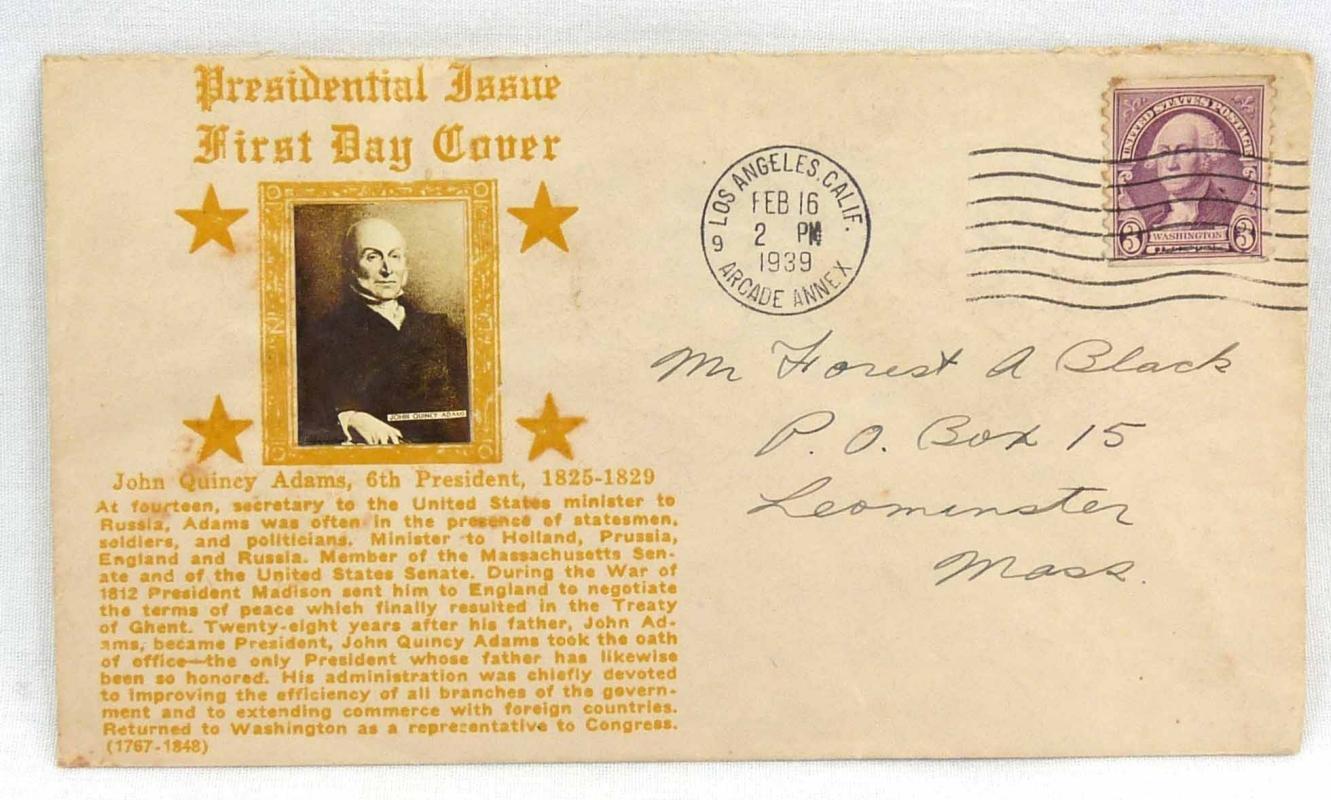 Presidential Issue
First Day Cover
JOHN QUINCY ADAMS
John Quincy Adams, 6th President, 1825-1829
At fourteen, secretary to the United States minister to
Russia, Adams was often in the presence of statesmen,
soldiers, and politicians. Minister to Holland, Prussia,
England and Russia. Member of the Massachusetts Sen-
ate and of the United States Senate. During the War of
1812 President Madison sent him to England to negotiate
the terms of peace which finally resulted in the Treaty
of Ghent. Twenty-eight years after his father, John Ad-
ams, became President, John Quincy Adams took the oath
of office—the only President whose father has likewise
been so honored. His administration was chiefly devoted
to improving the efficiency of all branches of the govern-
ment and to extending commerce with foreign countries.
Returned to Washington as a representative to Congress.
(1767-1848)
LOS ANGELES, CALIF.
FEB 16
2 PM
1939
9 ARCADE ANNEX
UNITED STATES POSTAGE
3 WASHINGTON 3
Mr Forest A Black
P. O. Box 15
Leominster
Mass.